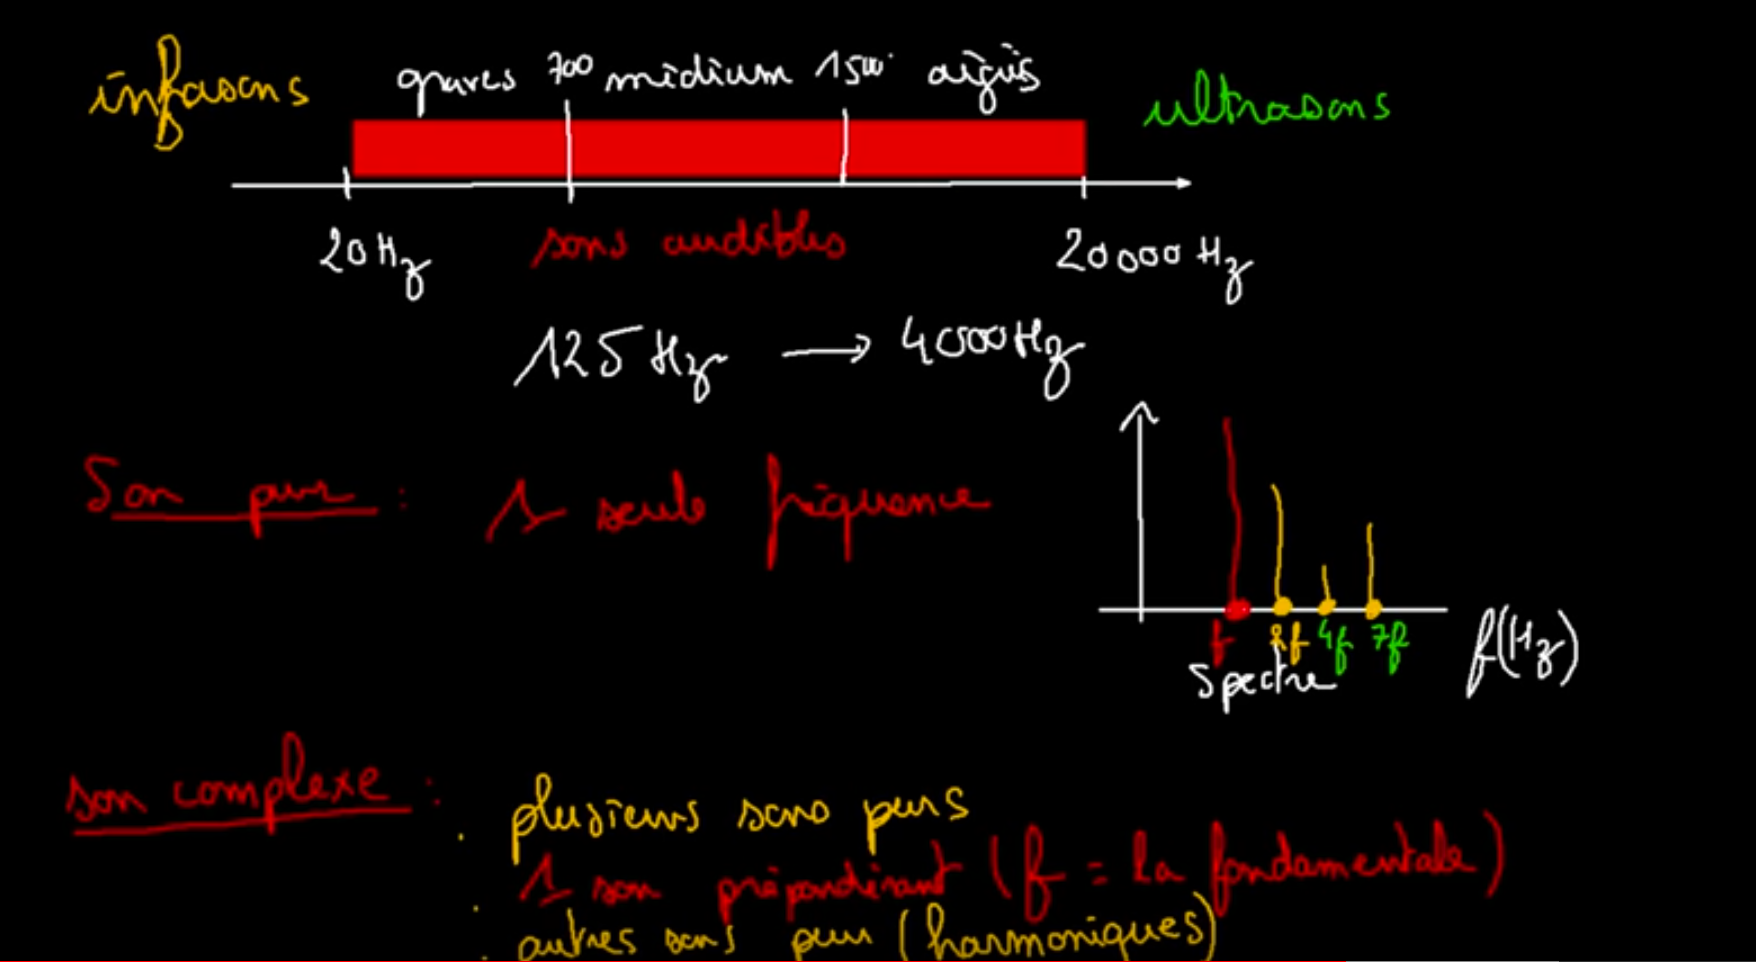 infasons graves 700 médium 1500 aigüs ultrasons
20 Hz sons audibles 20 000 Hz
125 Hz → 4000 Hz
Son pur : 1 seule fréquence
f 2f 4f 7f f(Hz)
Spectre
son complexe : . plusieurs sons purs
. 1 son prépondérant (f = la fondamentale)
. autres sons purs (harmoniques)